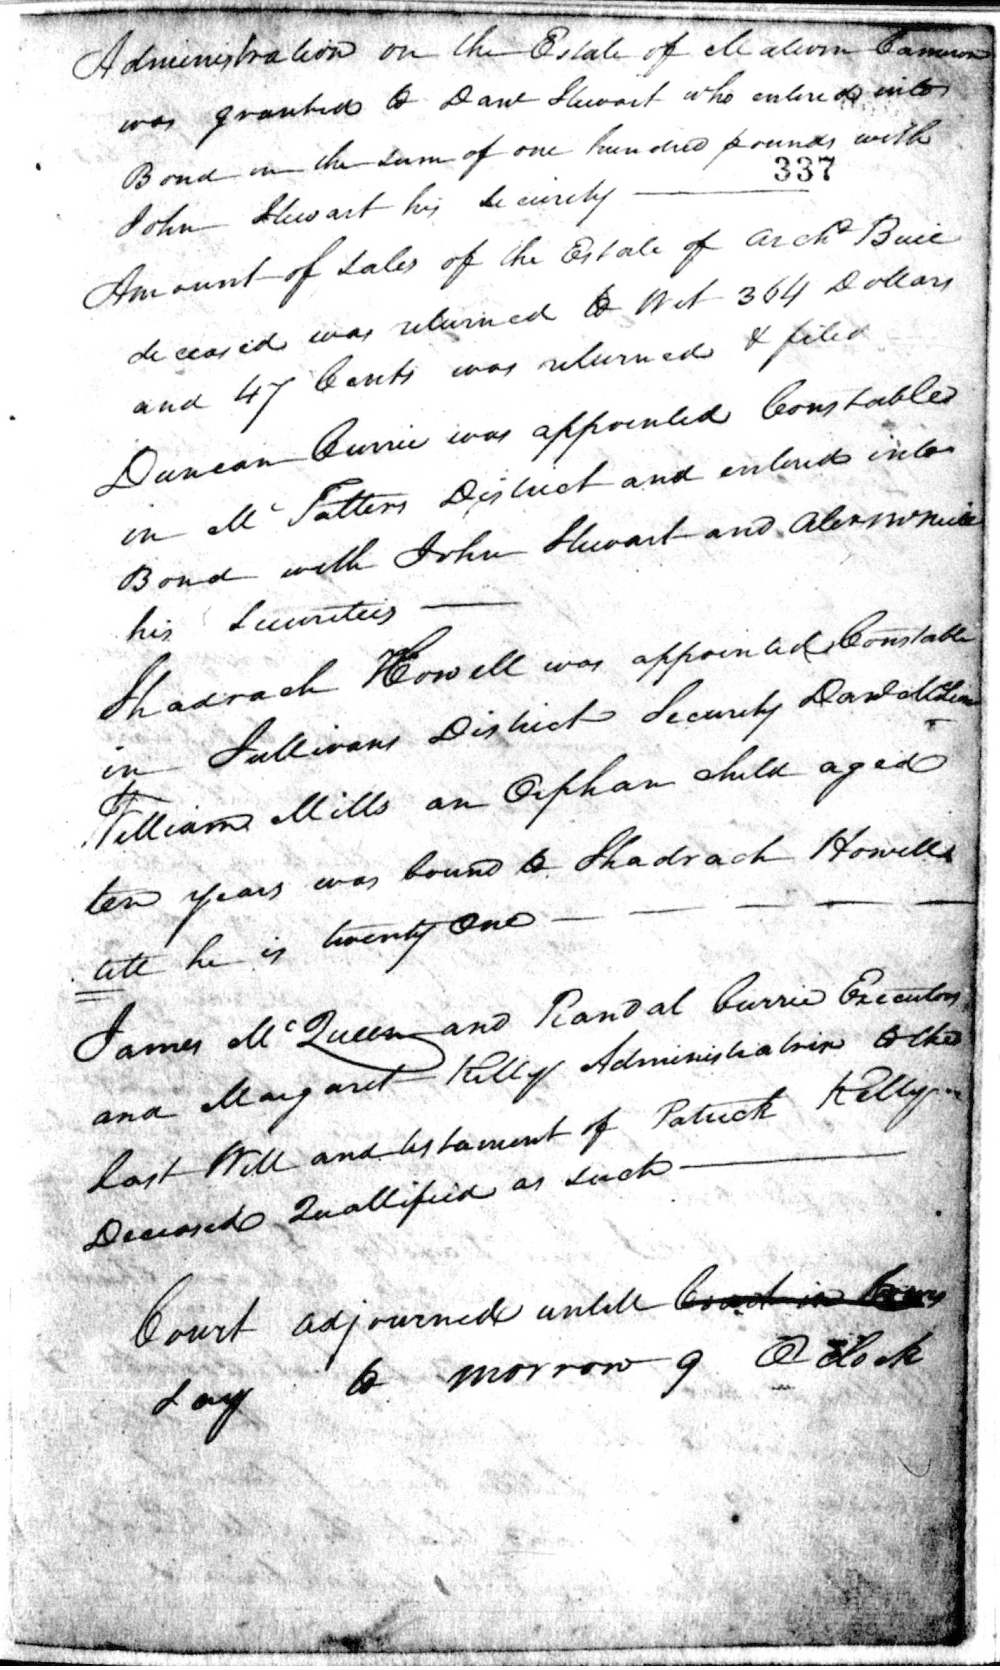 Administration on the Estate of Malcom Cameron
was granted to Danl Stewart who entered into
Bond in the sum of one hundred pounds with
337
John Stewart his Security
Amount of sales of the Estate of Archd Buie
deceased was returned to Wit 364 Dollars
and 47 Cents was returned & filed
Duncan Currie was appointed Constable
in Mc Fatters District and entered into
Bond with John Stewart and Alexr McNeill
his Securities
Shadrach Howell was appointed Constable
in Sullivans District Security Danl
William Mills an Orphan child aged
ten years was bound to Shadrach Howell
till he is twenty one
James Mc Queen and Randal Currie Executors
and Margaret Kelly Administratrix to the
Last Will and testament of Patrick Kelly
Deceased Quallified as such
Court adjourned untill Court in
say to morrow 9 O Clock